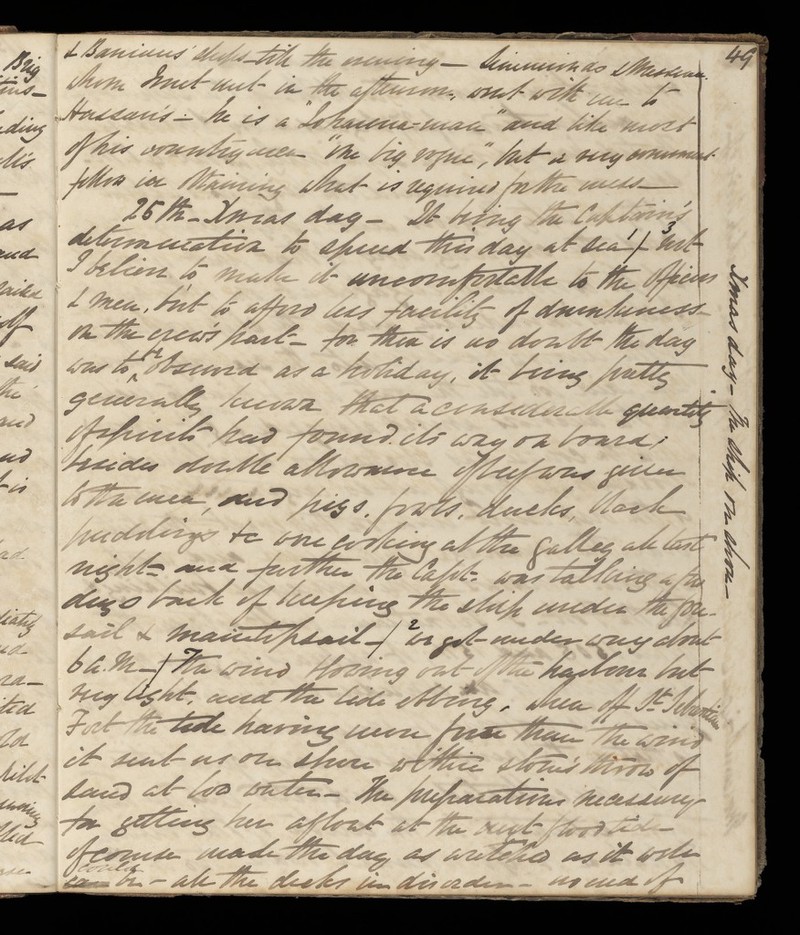 49
& Banians' shops till the evening —
whom I met out in the afternoon, went with me to
Hassan's — he is a "Johanna-man" and like most
of his countrymen "one big rogue", but a very
fellow in obtaining what is required for the mess —
25th. Xmas day — It being the Captain's
determination to spend this day at sea 1/ 3 not
I believe to make it uncomfortable to the Officers
& men, but to afford less facility of drunkenness
on the crew's part — for there is no doubt the day
was to be observed as a holiday, it being pretty
generally known that a considerable quantity
of spirits had found its way on board;
besides double allowance of beef was given
to the men, and pigs, fowls, ducks, black
puddings &c were cooking at the Galley all last
night — and further the Capt. was talking a few
days back of keeping the ship under the fore-
sail & maintopsail —/ 2 we got under way about
6 a.m —/ The wind blowing out of the harbour but
very light, and the tide ebbing, when off St. Sebastian
Fort the tide having more force than the wind
it sent us on shore within stone's throw of
land at low water — The preparations necessary
for getting her afloat at the next flood tide —
of course made the day as wretched as it well
could be — all the decks in disorder — no end of
Xmas day — The ship on shore —